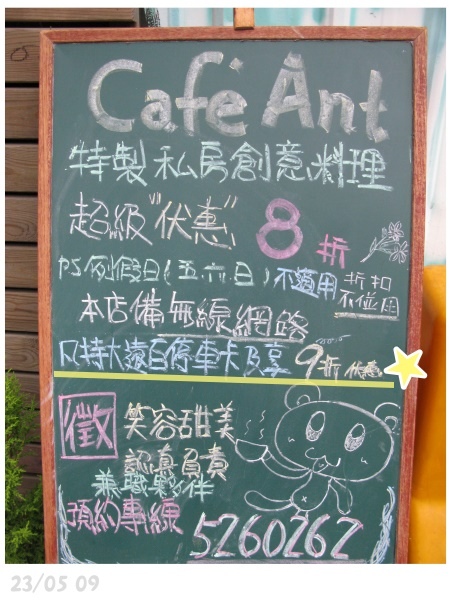 Café Ant
特製私房創意料理
超級"伏惠"8折
PS例假日(五.六.日)不適用 折扣
不併用
本店備無線網路
凡持大遠百停車卡及享9折 優惠
徵 笑容甜美
認真負責
兼職夥伴
預約專線
5260262
23/05 09